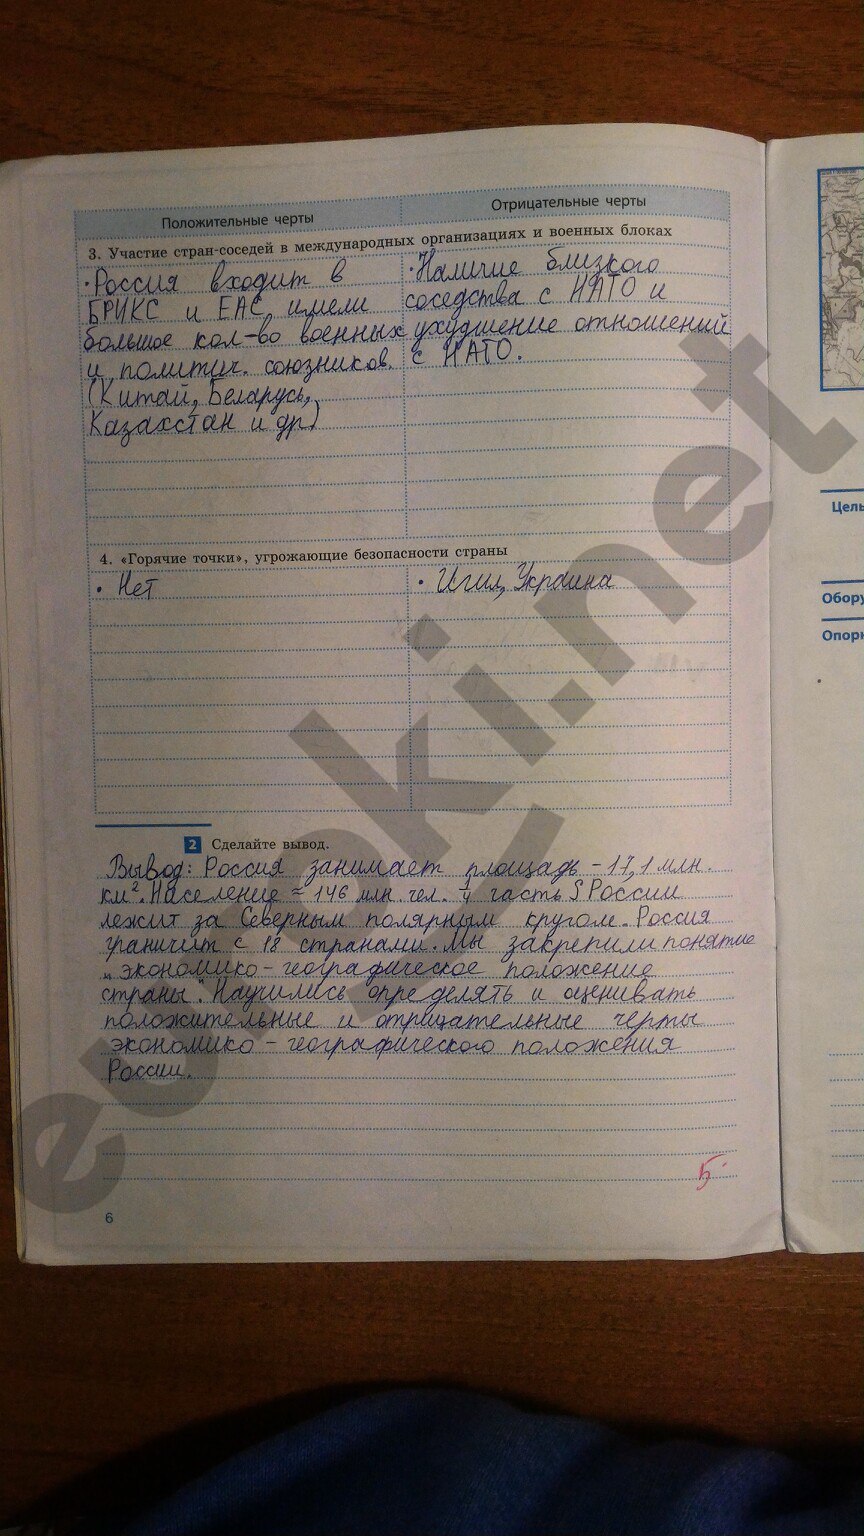 Положительные черты
Отрицательные черты
3. Участие стран-соседей в международных организациях и военных блоках
• Россия входит в
БРИКС и ЕАС имели
большое кол-во военных
и политич. союзников.
(Китай, Беларусь,
Казахстан и др)
• Наличие близкого
соседства с НАТО и
ухудшение отношений
с НАТО.
4. «Горячие точки», угрожающие безопасности страны
• Нет
• Игил, Украина
2 Сделайте вывод.
Вывод: Россия занимает площадь – 17,1 млн.
км². Население ≈ 146 млн. чел. 1/4 часть S России
лежит за Северным полярным кругом. Россия
граничит с 18 странами. Мы закрепили понятие
"экономико-географическое положение
страны". Научились определять и оценивать
положительные и отрицательные черты
экономико-географического положения
России.
5
6
Цель
Обору
Опорн
euroki.net